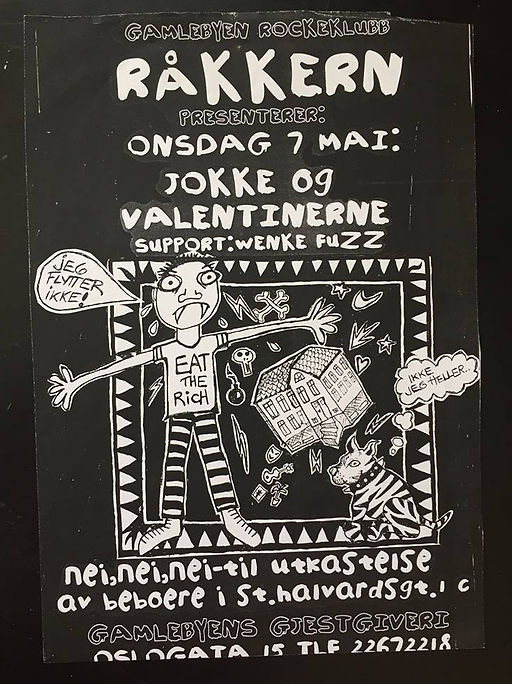 GAMLEBYEN ROCKEKLUBB
RÅKKERN
PRESENTERER:
ONSDAG 7 MAI:
JOKKE og
VALENTINERNE
SUPPORT: WENKE FUZZ
JEG
FLYTTER
IKKE!
EAT
THE
RICH
IKKE
JEG HELLER..
nei,nei,nei-til utkastelse
av beboere i St.halvardsgt.1 c
GAMLEBYENS GJESTGIVERI
OSLOGATA 15 TLF 22672218